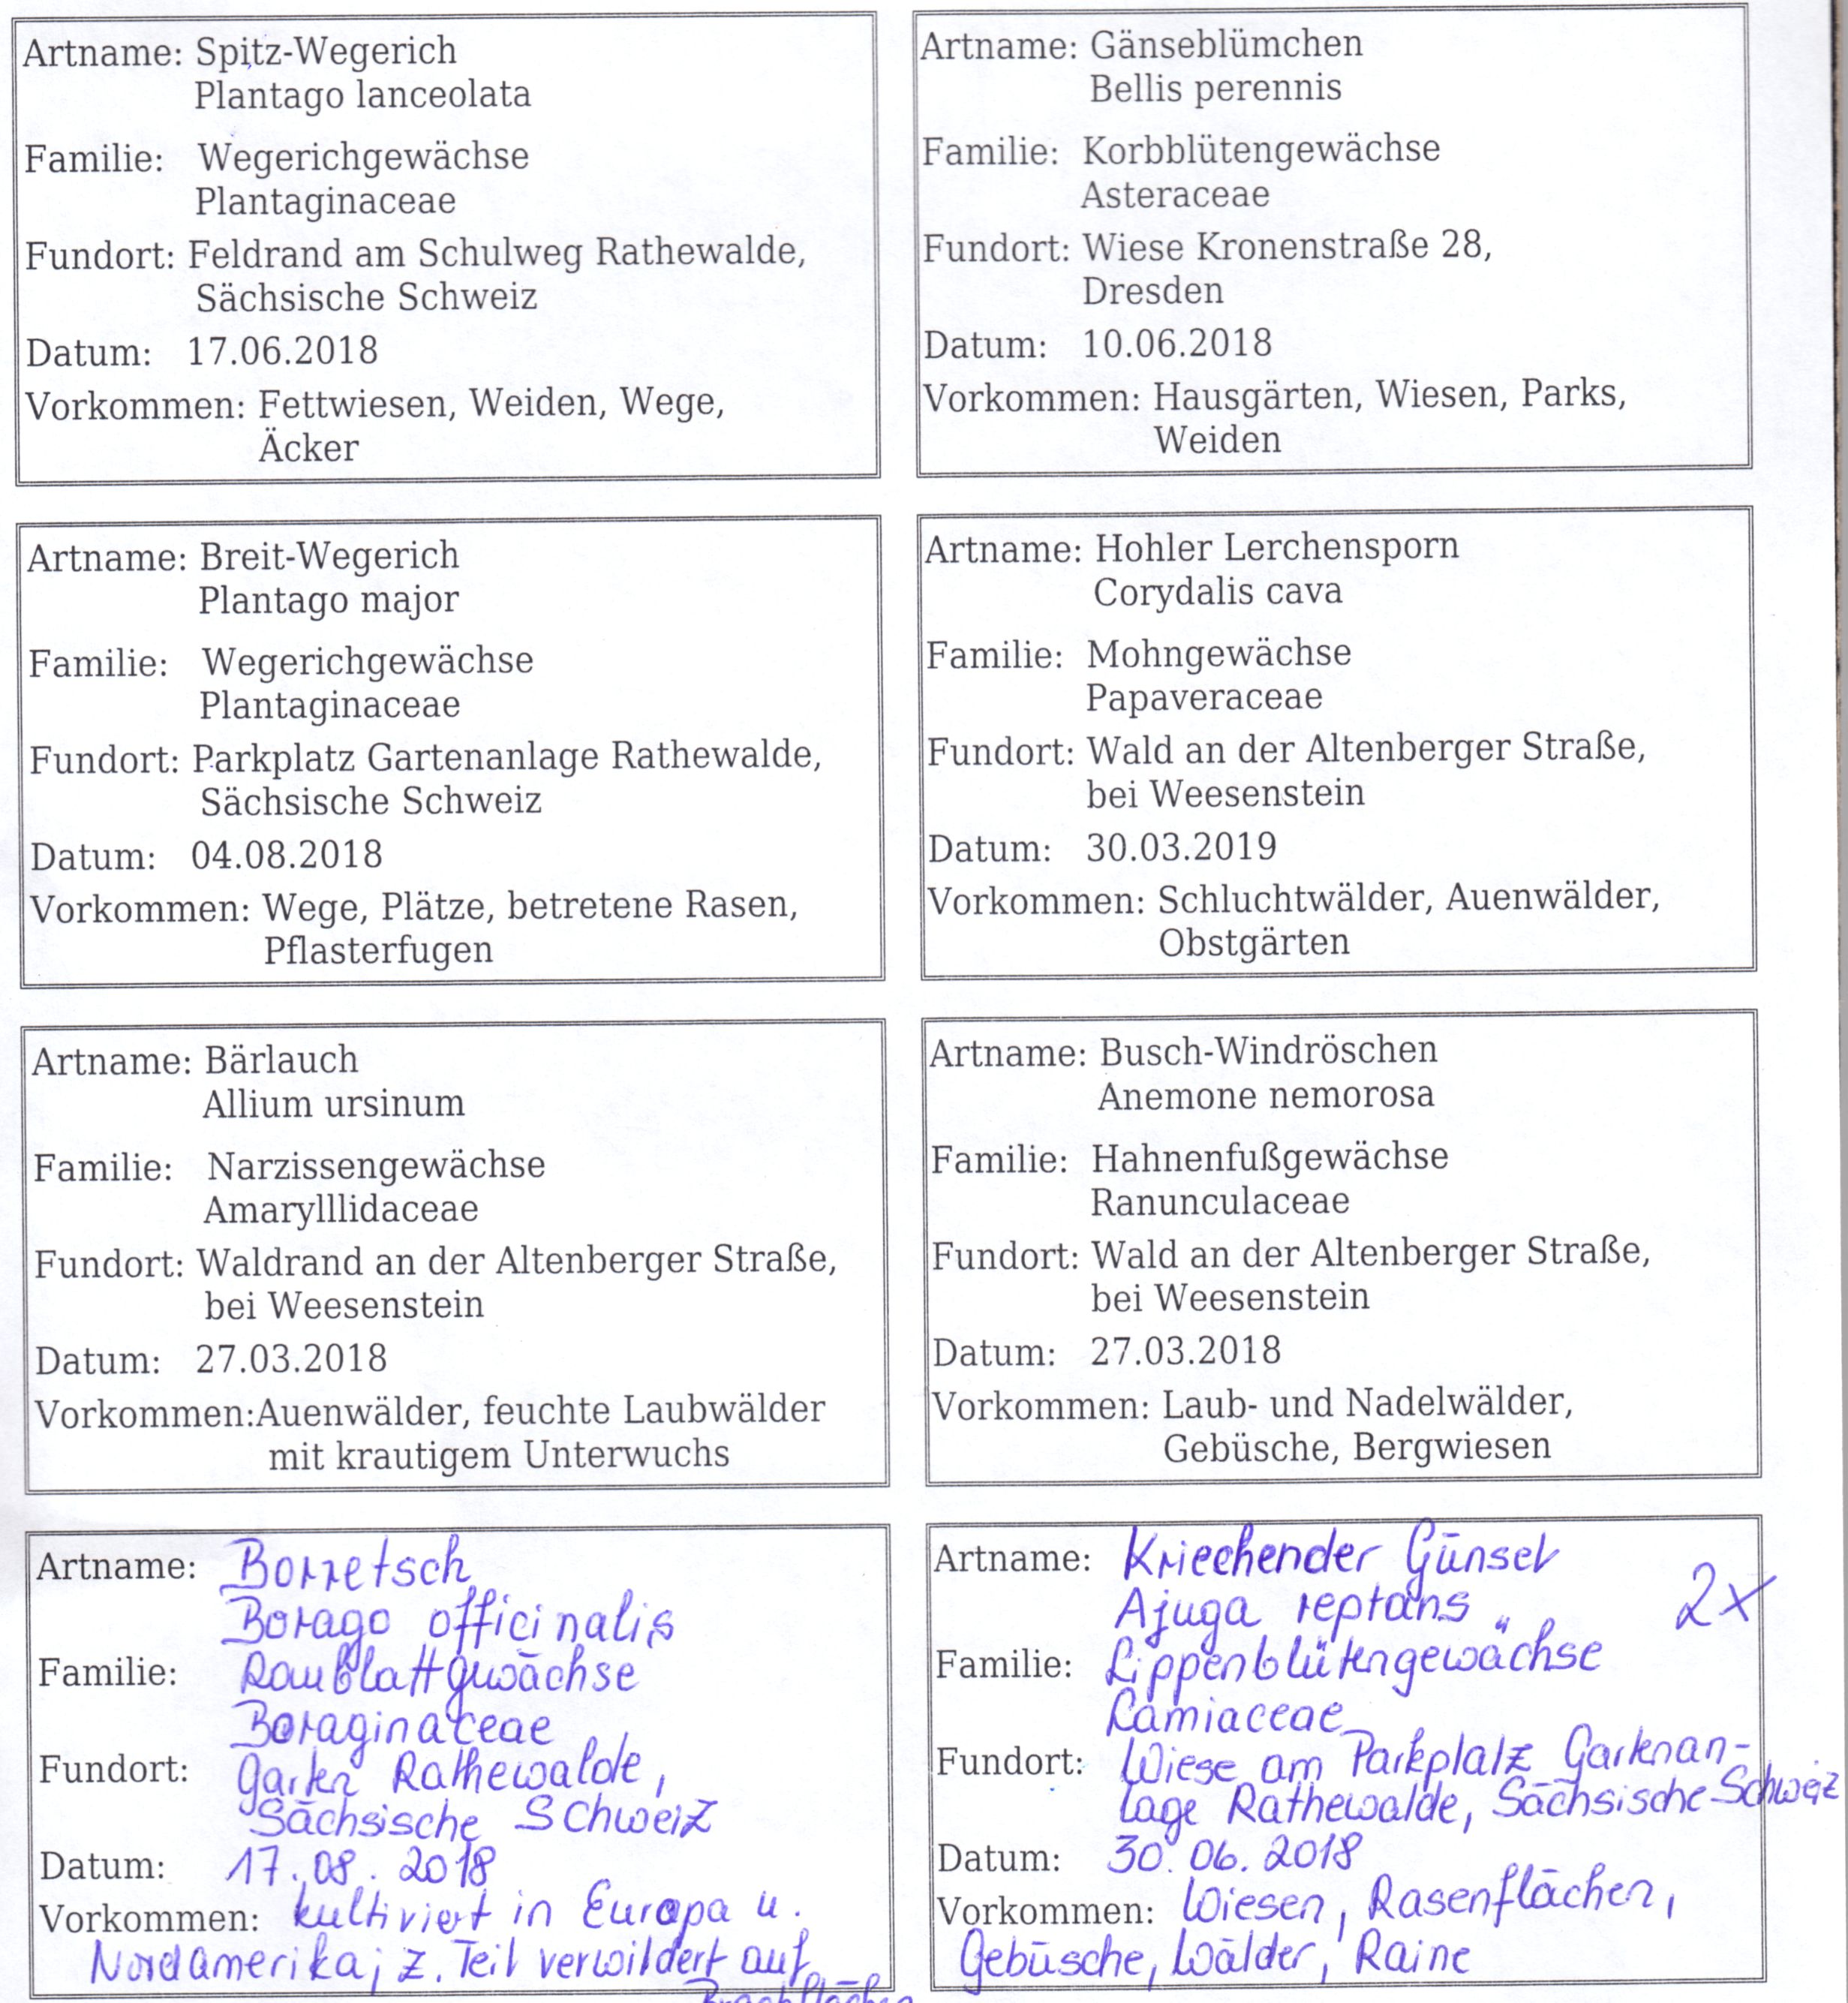 Artname: Spitz-Wegerich
Plantago lanceolata
Familie: Wegerichgewächse
Plantaginaceae
Fundort: Feldrand am Schulweg Rathewalde,
Sächsische Schweiz
Datum: 17.06.2018
Vorkommen: Fettwiesen, Weiden, Wege,
Äcker
Artname: Gänseblümchen
Bellis perennis
Familie: Korbblütengewächse
Asteraceae
Fundort: Wiese Kronenstraße 28,
Dresden
Datum: 10.06.2018
Vorkommen: Hausgärten, Wiesen, Parks,
Weiden
Artname: Breit-Wegerich
Plantago major
Familie: Wegerichgewächse
Plantaginaceae
Fundort: Parkplatz Gartenanlage Rathewalde,
Sächsische Schweiz
Datum: 04.08.2018
Vorkommen: Wege, Plätze, betretene Rasen,
Pflasterfugen
Artname: Hohler Lerchensporn
Corydalis cava
Familie: Mohngewächse
Papaveraceae
Fundort: Wald an der Altenberger Straße,
bei Weesenstein
Datum: 30.03.2019
Vorkommen: Schluchtwälder, Auenwälder,
Obstgärten
Artname: Bärlauch
Allium ursinum
Familie: Narzissengewächse
Amarylllidaceae
Fundort: Waldrand an der Altenberger Straße,
bei Weesenstein
Datum: 27.03.2018
Vorkommen:Auenwälder, feuchte Laubwälder
mit krautigem Unterwuchs
Artname: Busch-Windröschen
Anemone nemorosa
Familie: Hahnenfußgewächse
Ranunculaceae
Fundort: Wald an der Altenberger Straße,
bei Weesenstein
Datum: 27.03.2018
Vorkommen: Laub- und Nadelwälder,
Gebüsche, Bergwiesen
Artname: Borretsch
Borago officinalis
Familie: Raublattgwächse
Boraginaceae
Fundort: Garten Rathewalde,
Sächsische Schweiz
Datum: 17.08.2018
Vorkommen: kultiviert in Europa u.
Nordamerika; z. Teil verwildert auf
Brachflächen
Artname: Kriechender Günsel
Ajuga reptans 2x
Familie: Lippenblütengewächse
Lamiaceae
Fundort: Wiese am Parkplatz Gartenan-
lage Rathewalde, Sächsische Schweiz
Datum: 30.06.2018
Vorkommen: Wiesen, Rasenflächen,
Gebüsche, Wälder, Raine